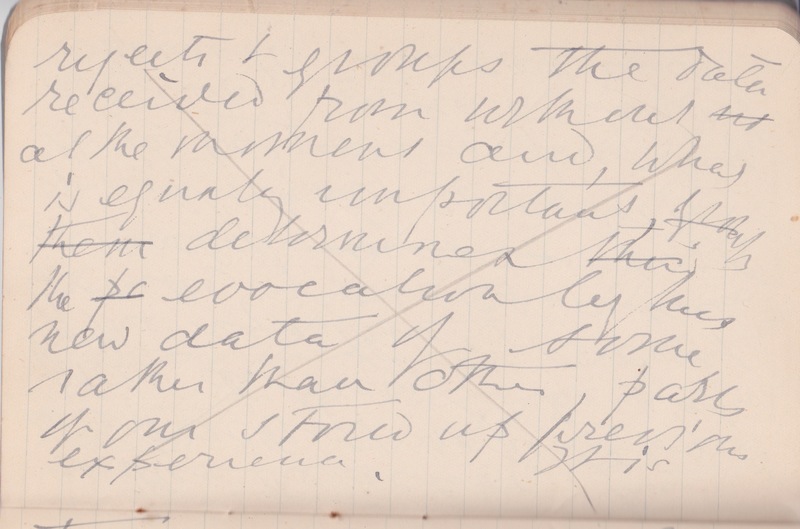 rejects & groups the data
received from without
at the moment and, what
is equally important,
them determines this
the evocation by this
new data of some
rather than other, parts
of our stored up previous
experience. It is